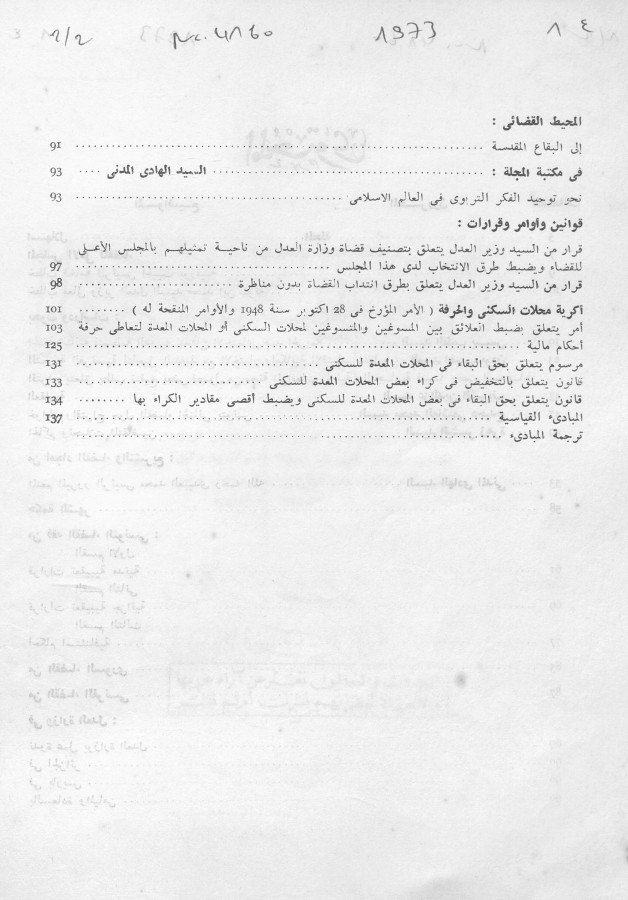 2/2 Nc. 4160 1973 1 4
المحيط القضائى :
إلى البقاع المقدسة ........ 91
فى مكتبة المجلة : ........ السيد الهادى المدنى .... 93
نحو توحيد الفكر التربوى فى العالم الاسلامى ........ 93
قوانين وأوامر وقرارات :
قرار من السيد وزير العدل يتعلق بتصنيف قضاة وزارة العدل من ناحية تمثيلهم بالمجلس الأعلى
للقضاء ويضبط طرق الانتخاب لدى هذا المجلس ........ 97
قرار من السيد وزير العدل يتعلق بطرق انتداب القضاة بدون مناظرة ........ 98
أكرية محلات السكنى والحرفة ( الأمر المؤرخ فى 28 اكتوبر سنة 1948 والأوامر المنقحة له ) ........ 101
أمر يتعلق بضبط العلائق بين المسوغين والمتسوغين لمحلات السكنى أو المحلات المعدة لتعاطى حرفة 103
أحكام مالية ........ 125
مرسوم يتعلق بحق البقاء فى المحلات المعدة للسكنى ........ 131
قانون يتعلق بالتخفيض فى كراء بعض المحلات المعدة للسكنى ........ 133
قانون يتعلق بحق البقاء فى بعض المحلات المعدة للسكنى ويضبط أقصى مقادير الكراء بها ........ 134
المبادىء القياسية ........ 137
ترجمة المبادىء ........